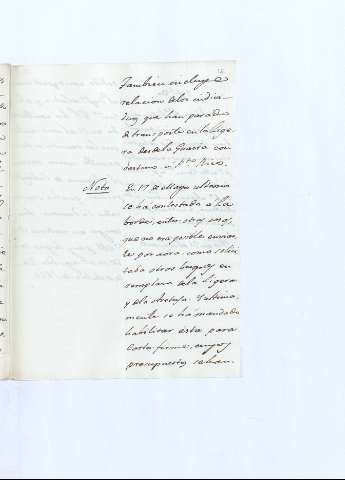 Tambien incluye
relacion de los indivi-
duos que han pasado
de transporte en la Lige-
ra desde la Guaira con
destino a Pto Rico.
Nota En 17 de Mayo ultimo
se ha contestado a La
borde, entre otras cosas,
que no era posible enviar-
le por aora, como solici-
taba otros buques en
remplazo de la Ligera
y de la Aretusa. Y ultima-
mente se ha mandado
habilitar esta para
Costa-firme, cuyos
presupuestos se han